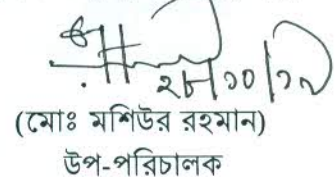 ২৮/১০/১৯
(মোঃ মশিউর রহমান)
উপ-পরিচালক